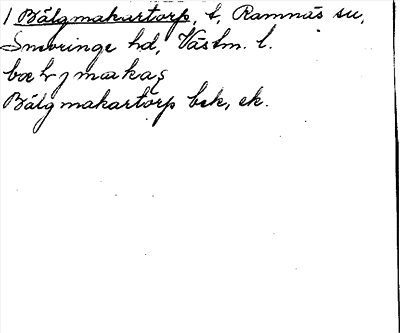 1 Bälgmakartorp, t, Ramnäs sn,
Snevringe hd, Västm. l.
Bälgmakartorp bek, ek.